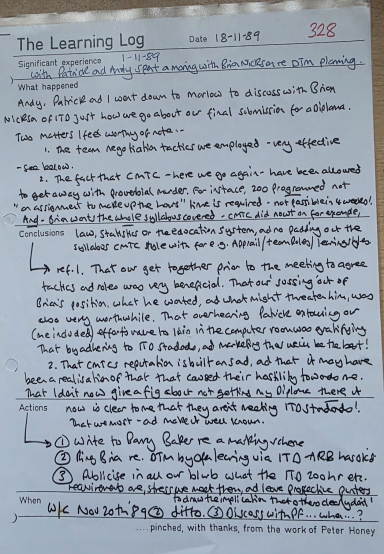 328
The Learning Log Date 18-11-89
Significant experience 1-11-89
with Patrick ad Andy spent a morning with Brian Nickson re DTM planning.
What happened
Andy, Patrick ad I went down to Marlow to discuss with Brian
Nickson of ITO just how we go about our final submission for a Diploma.
Two matters I feel worthy of note:-
1. The team negotiation tactics we employed - very effective
- see below.
2. The fact that CMTC - here we go again - have been allowed
to get away with proverbial murder. For instance, 200 programmed not
"on assignment to make up the hours" time is required - not possible in 4 weeks!.
And - Brian wants the whole syllabus covered - CMTC did not on for example,
Conclusions law, Statistics or the education system, ad no padding out the
syllabus CMTC style with for e.g. Appraisal/team roles/learning styles
ref. 1. That our get together prior to the meeting to agree
tactics and roles was very beneficial. That our sussing out of
Brian's position, what he wanted, and what might threaten him, was
also very worthwhile. That overhearing Patrick extolling our
(me included) efforts to in the computer room was gratifying
That by adhering to ITO standards, ad marketing that we will be the best!
2. That CMTC's reputation is built on sad, ad that it may have
been a realisation of that that caused their hostility towards me.
That I do not now give a fig about not getting my Diploma there it
Actions now is clear to me that they aren't meeting ITO standards!.
That we must - ad make it well known.
① Write to Parry Baker re a marking scheme
② Ring Brian re. DTM by open learing via ITD - ARB hassocks
③ Publicise in all our blurb what the ITO 200hr etc.
requirements are, stress we meet them, ad leave prospective punters
to draw the implication that others clearly don't!
When W/C Nov 20th 89 ② ditto. ③ Discuss with PF... when...?
....pinched, with thanks, from the work of Peter Honey